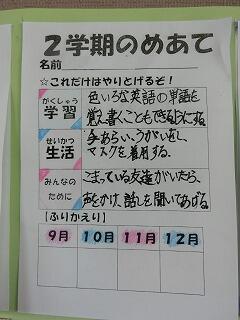 2学期のめあて
名前
☆これだけはやりとげるぞ！
がくしゅう
学習
色いろな英語の単語を
覚え書くこともできるようにする
せいかつ
生活
手あらい、うがいをし、
マスクを着用する。
みんなの
ために
こまっている友達がいたら、
声をかけ、話しを聞いてあげる。
【ふりかえり】
9月 10月 11月 12月